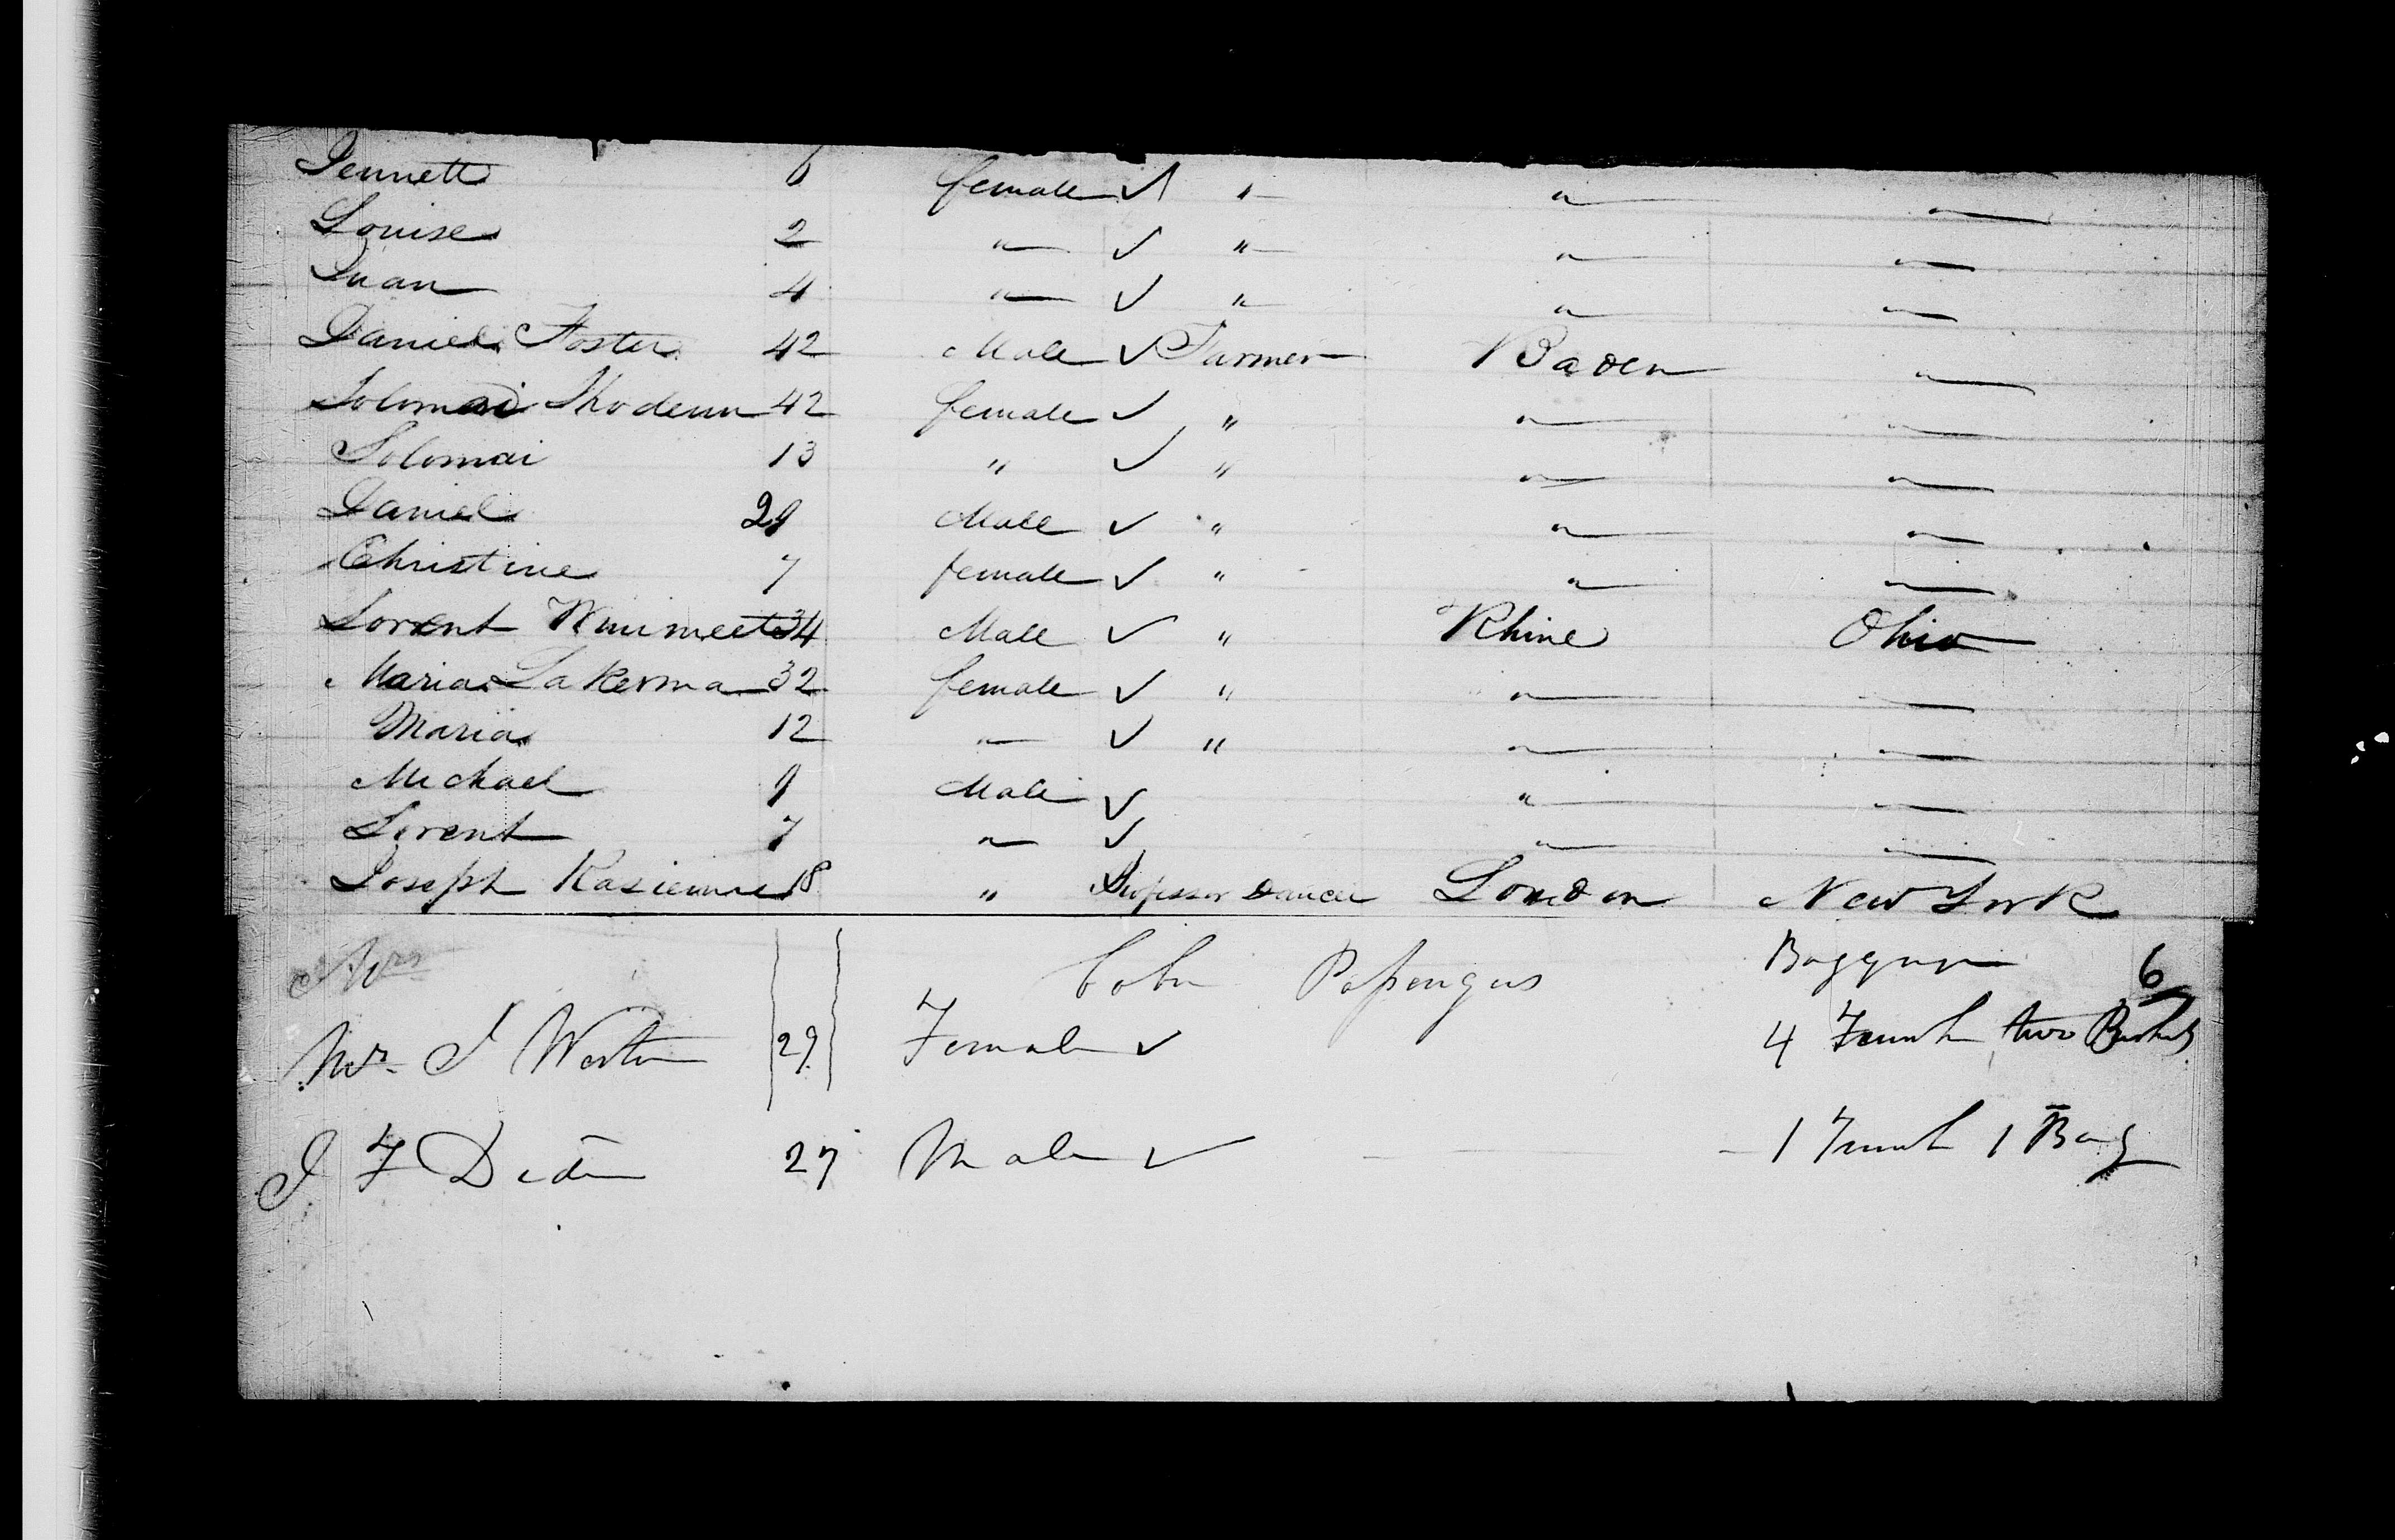 Jennett 6 female ✓ " " "
Louise 2 " ✓ " " "
Juan 4 " ✓ " " "
Daniel Foster 42 Male ✓ Farmer Baden "
Solomai 42 female ✓ " " "
Solomai 13 " ✓ " " "
Daniel Male ✓ " " "
Christine 7 female ✓ " " "
Lorent 34 Male ✓ " Rhine Ohio
Maria Lakerma 32 female ✓ " " "
Maria 12 " ✓ " " "
Michael 9 Male ✓ " "
Lorent 7 " ✓ " "
Joseph 18 " Professor Dancer London New York
Mrs
Cabin Passengers Baggage 6
Mrs J 29 Female ✓ 4 Trunk two
J F 27 Male ✓ 1 Trunk 1 Bag